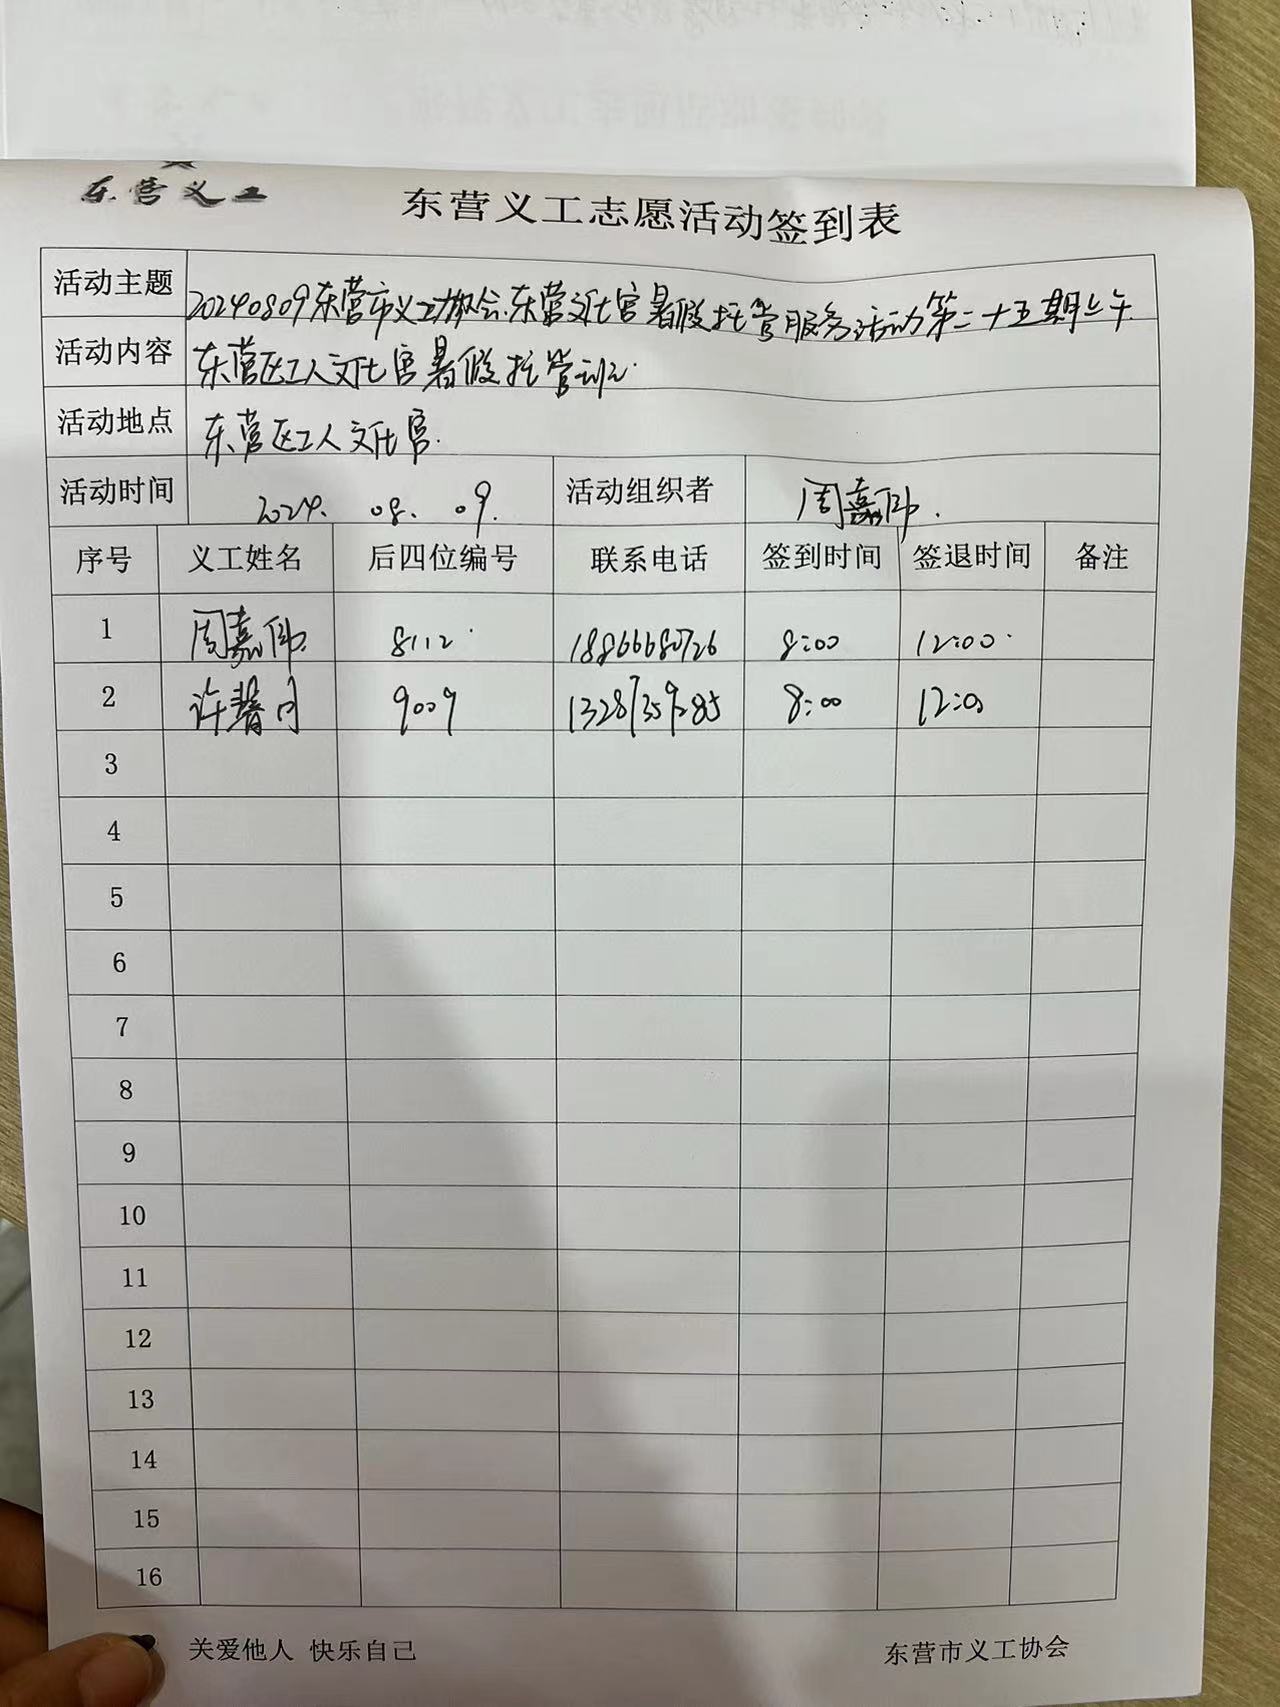 东营义工
东营义工志愿活动签到表
活动主题 20240809东营市义工协会.东营文化宫暑假托管服务活动第二十五期上午
活动内容 东营区工人文化宫暑假托管班.
活动地点 东营区工人文化宫.
活动时间 2024. 08. 09. 活动组织者 周嘉伟.
序号 义工姓名 后四位编号 联系电话 签到时间 签退时间 备注
1 周嘉伟. 8112 18866680726 8:00 12:00
2 许馨月 9009 13287359285 8:00 12:00
3
4
5
6
7
8
9
10
11
12
13
14
15
16
关爱他人 快乐自己 东营市义工协会